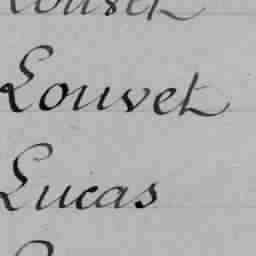 Louvet
Lucas